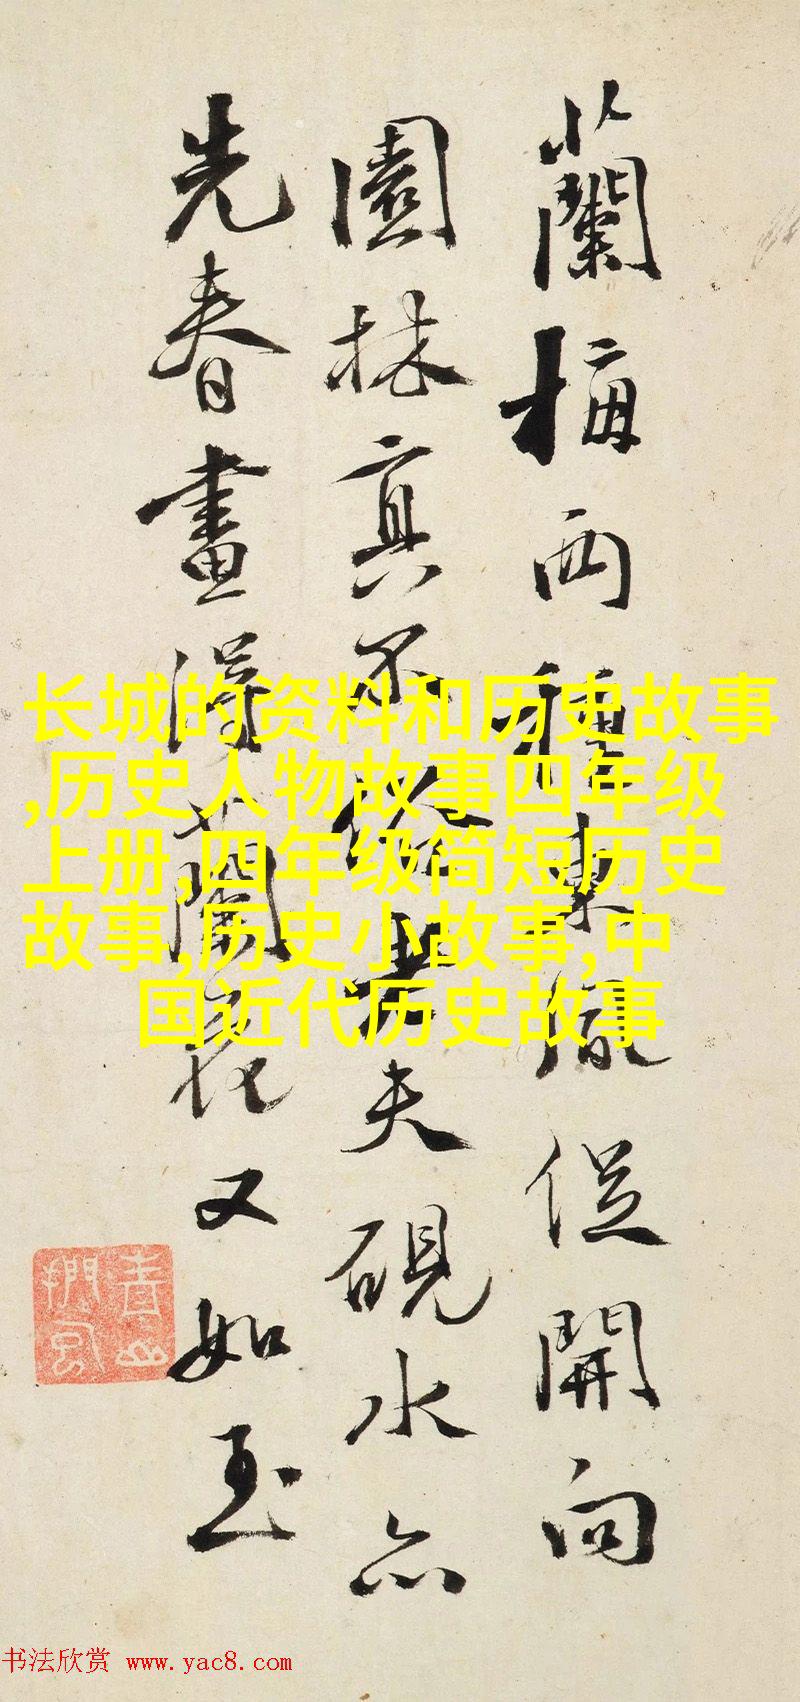 蘭梅兩種東風從開向
園林真不俗老夫硯水亦
先春畫得蘭花又如玉
长城的资料和历史故事
,历史人物故事四年级
上册,四年级简短历史
故事,历史小故事,中
国近代历史故事
书法欣赏 www.yac8.com